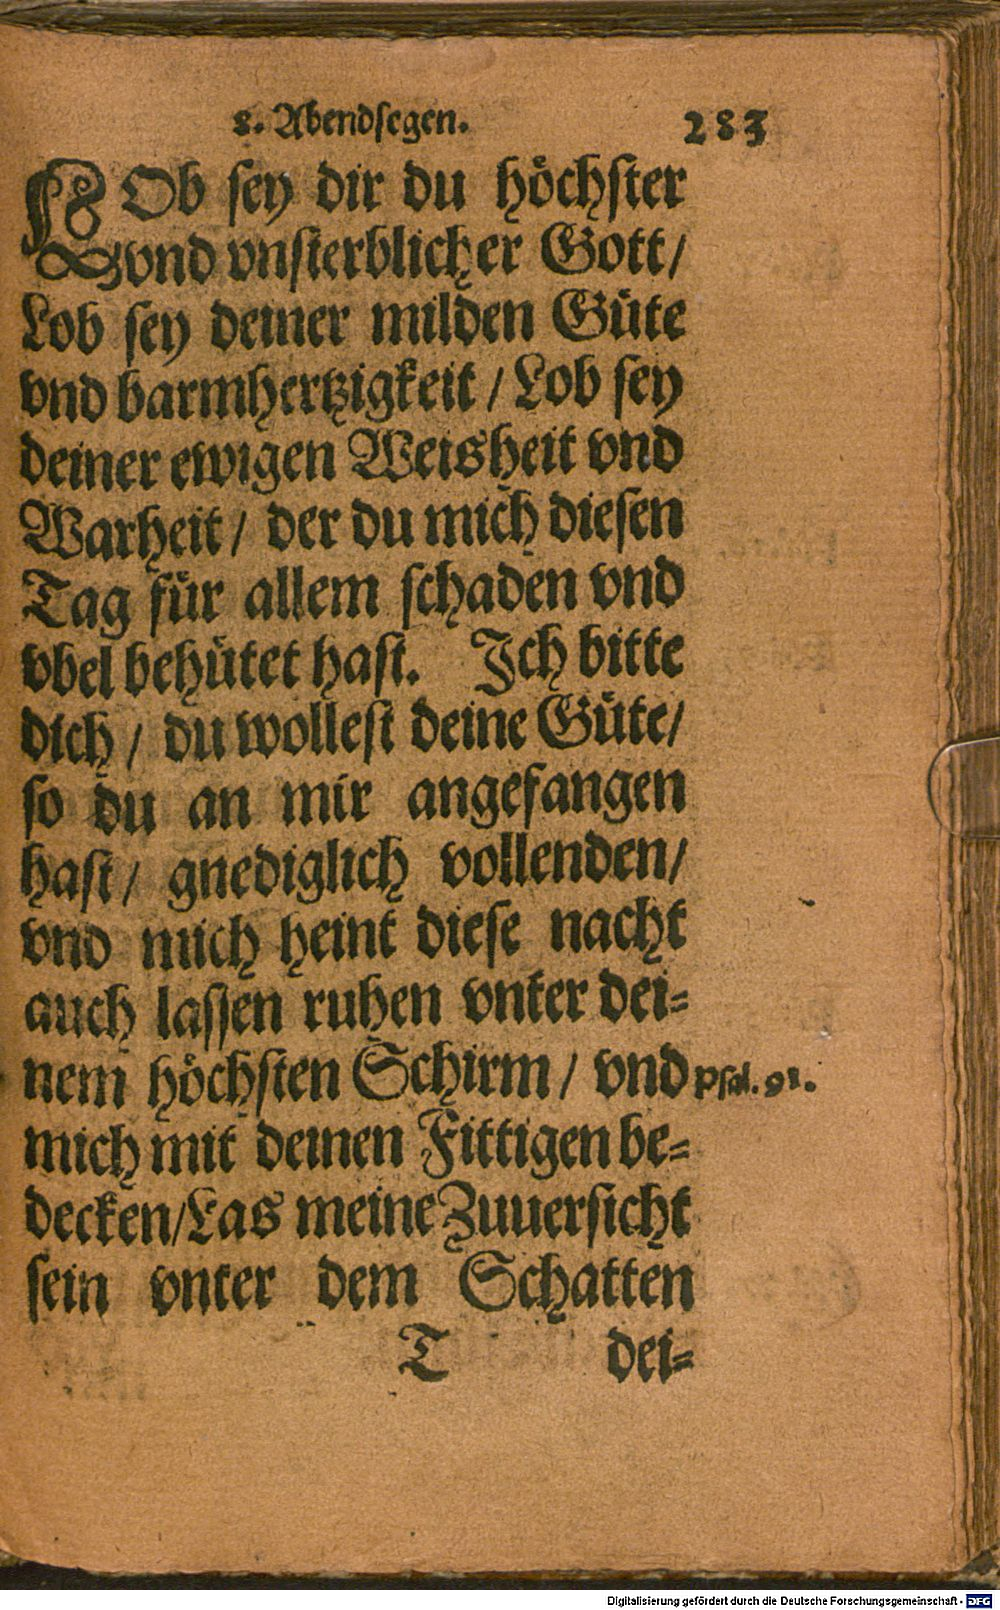 8. Abendsegen. 283
LOb sey dir du höchster
vnd vnsterblicher Gott/
Lob sey deiner milden Güte
vnd barmhertzigkeit / Lob sey
deiner ewigen Weisheit vnd
Warheit / der du mich diesen
Tag für allem schaden vnd
vbel behütet hast. Ich bitte
dich / du wollest deine Güte/
so du an mir angefangen
hast / gnediglich vollenden/
vnd mich heint diese nacht
auch lassen ruhen vnter dei=
nem höchsten Schirm / vnd Psal. 91.
mich mit deinen Fittigen be=
decken/Las meine Zuuersicht
sein vnter dem Schatten
T dei=
Digitalisierung gefördert durch die Deutsche Forschungsgemeinschaft - DFG